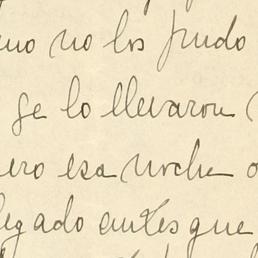 no no los pudo
se lo llevaron
ero esa noche
legado antes que